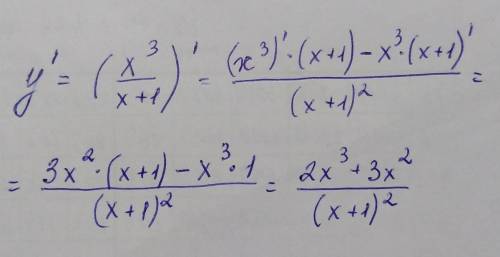 y' = (x³/(x+1))' = ((x³)'·(x+1) − x³·(x+1)')/(x+1)² =
= (3x²·(x+1) − x³·1)/(x+1)² = (2x³+3x²)/(x+1)²